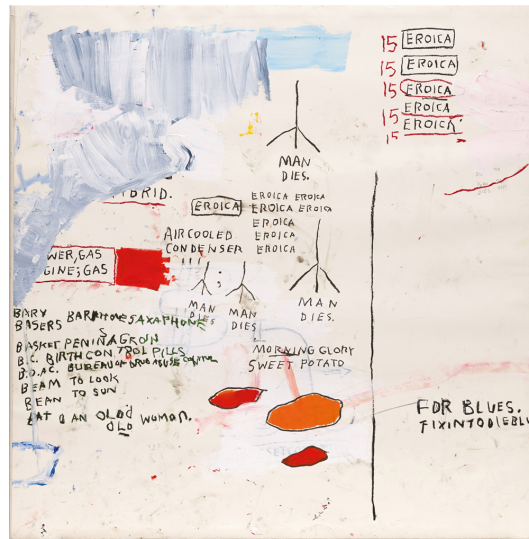 15 EROICA
15 EROICA
15 EROICA
15 EROICA
15 EROICA
MAN
DIES.
BRID.
EROICA
EROICA EROICA
EROICA EROICA
EROICA
EROICA
EROICA
AIR COOLED
CONDENSER
WER, GAS
GINE; GAS
MAN
DIES
MAN
DIES
MAN
DIES.
BARY BARITONE SAXAPHONE
BASERS
BASKET PENIN AGROIN
B.C. BIRTH CONTROL PILLS
B.D.A.C. BUREAU OF DRUG ABUSE
BEAM TO LOOK
BEAN TO SUN
EAT O AN OLD
OLD WOMAN.
MORNING GLORY
SWEET POTATO
FOR BLUES.
FIXINTODIEBLU